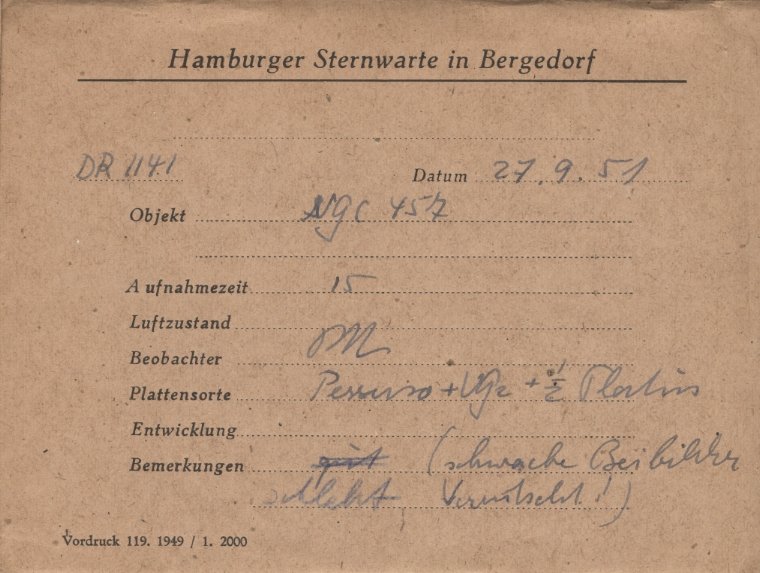 Hamburger Sternwarte in Bergedorf
DR 1141 Datum 27.9.51
Objekt NGC 457
Aufnahmezeit 15
Luftzustand
Beobachter
Plattensorte + VG2 + 1/2 Platins
Entwicklung
Bemerkungen gut (schwache Beibilder
schlecht, Verrutscht!)
Vordruck 119. 1949 / 1. 2000